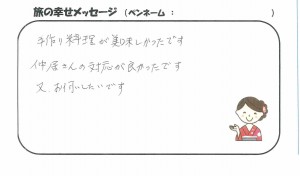 旅の幸せメッセージ (ペンネーム : )
手作り料理が美味しかったです
仲居さんの対応が良かったです
又、お伺いしたいです